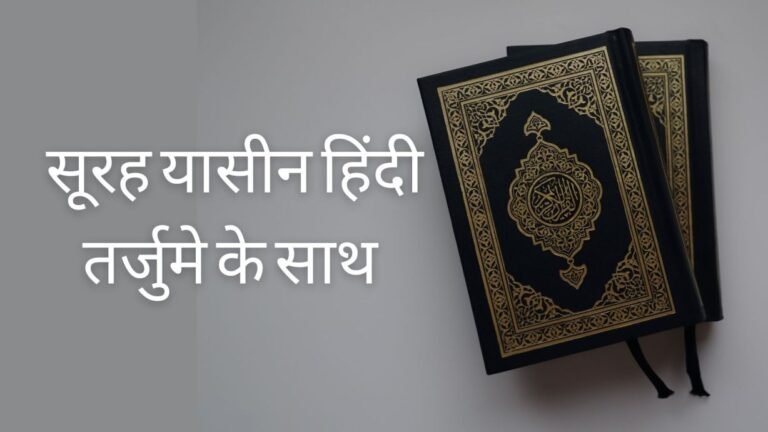 सूरह यासीन हिंदी
तर्जुमे के साथ